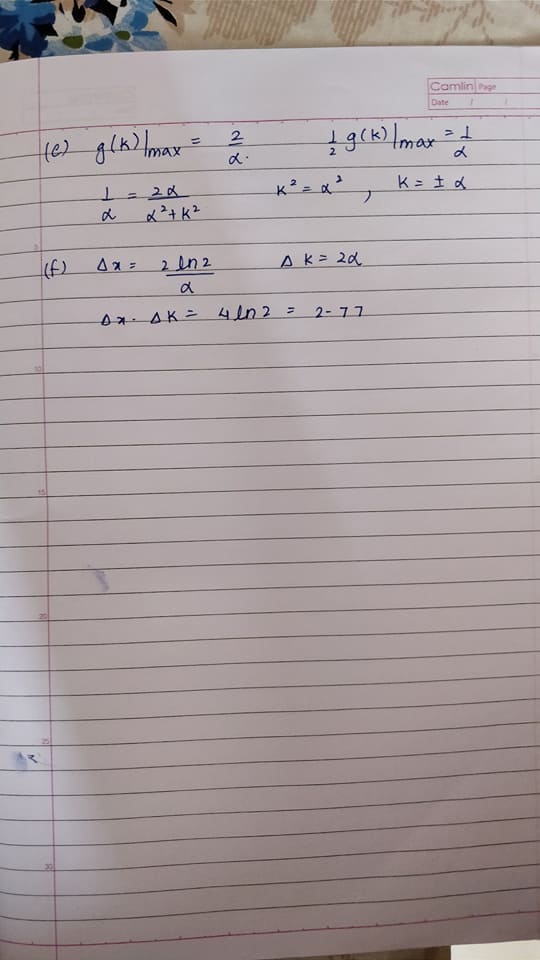 Camlin Page
Date / /
(e) g(k)|max = 2/α. 1/2 g(k)|max = 1/α
1/α = 2α/(α²+k²) k² = α², k = ± α
5
(f) Δx = 2 ln2/α Δ k = 2α
Δx · Δk = 4 ln2 = 2-77
10
15
20
25
30